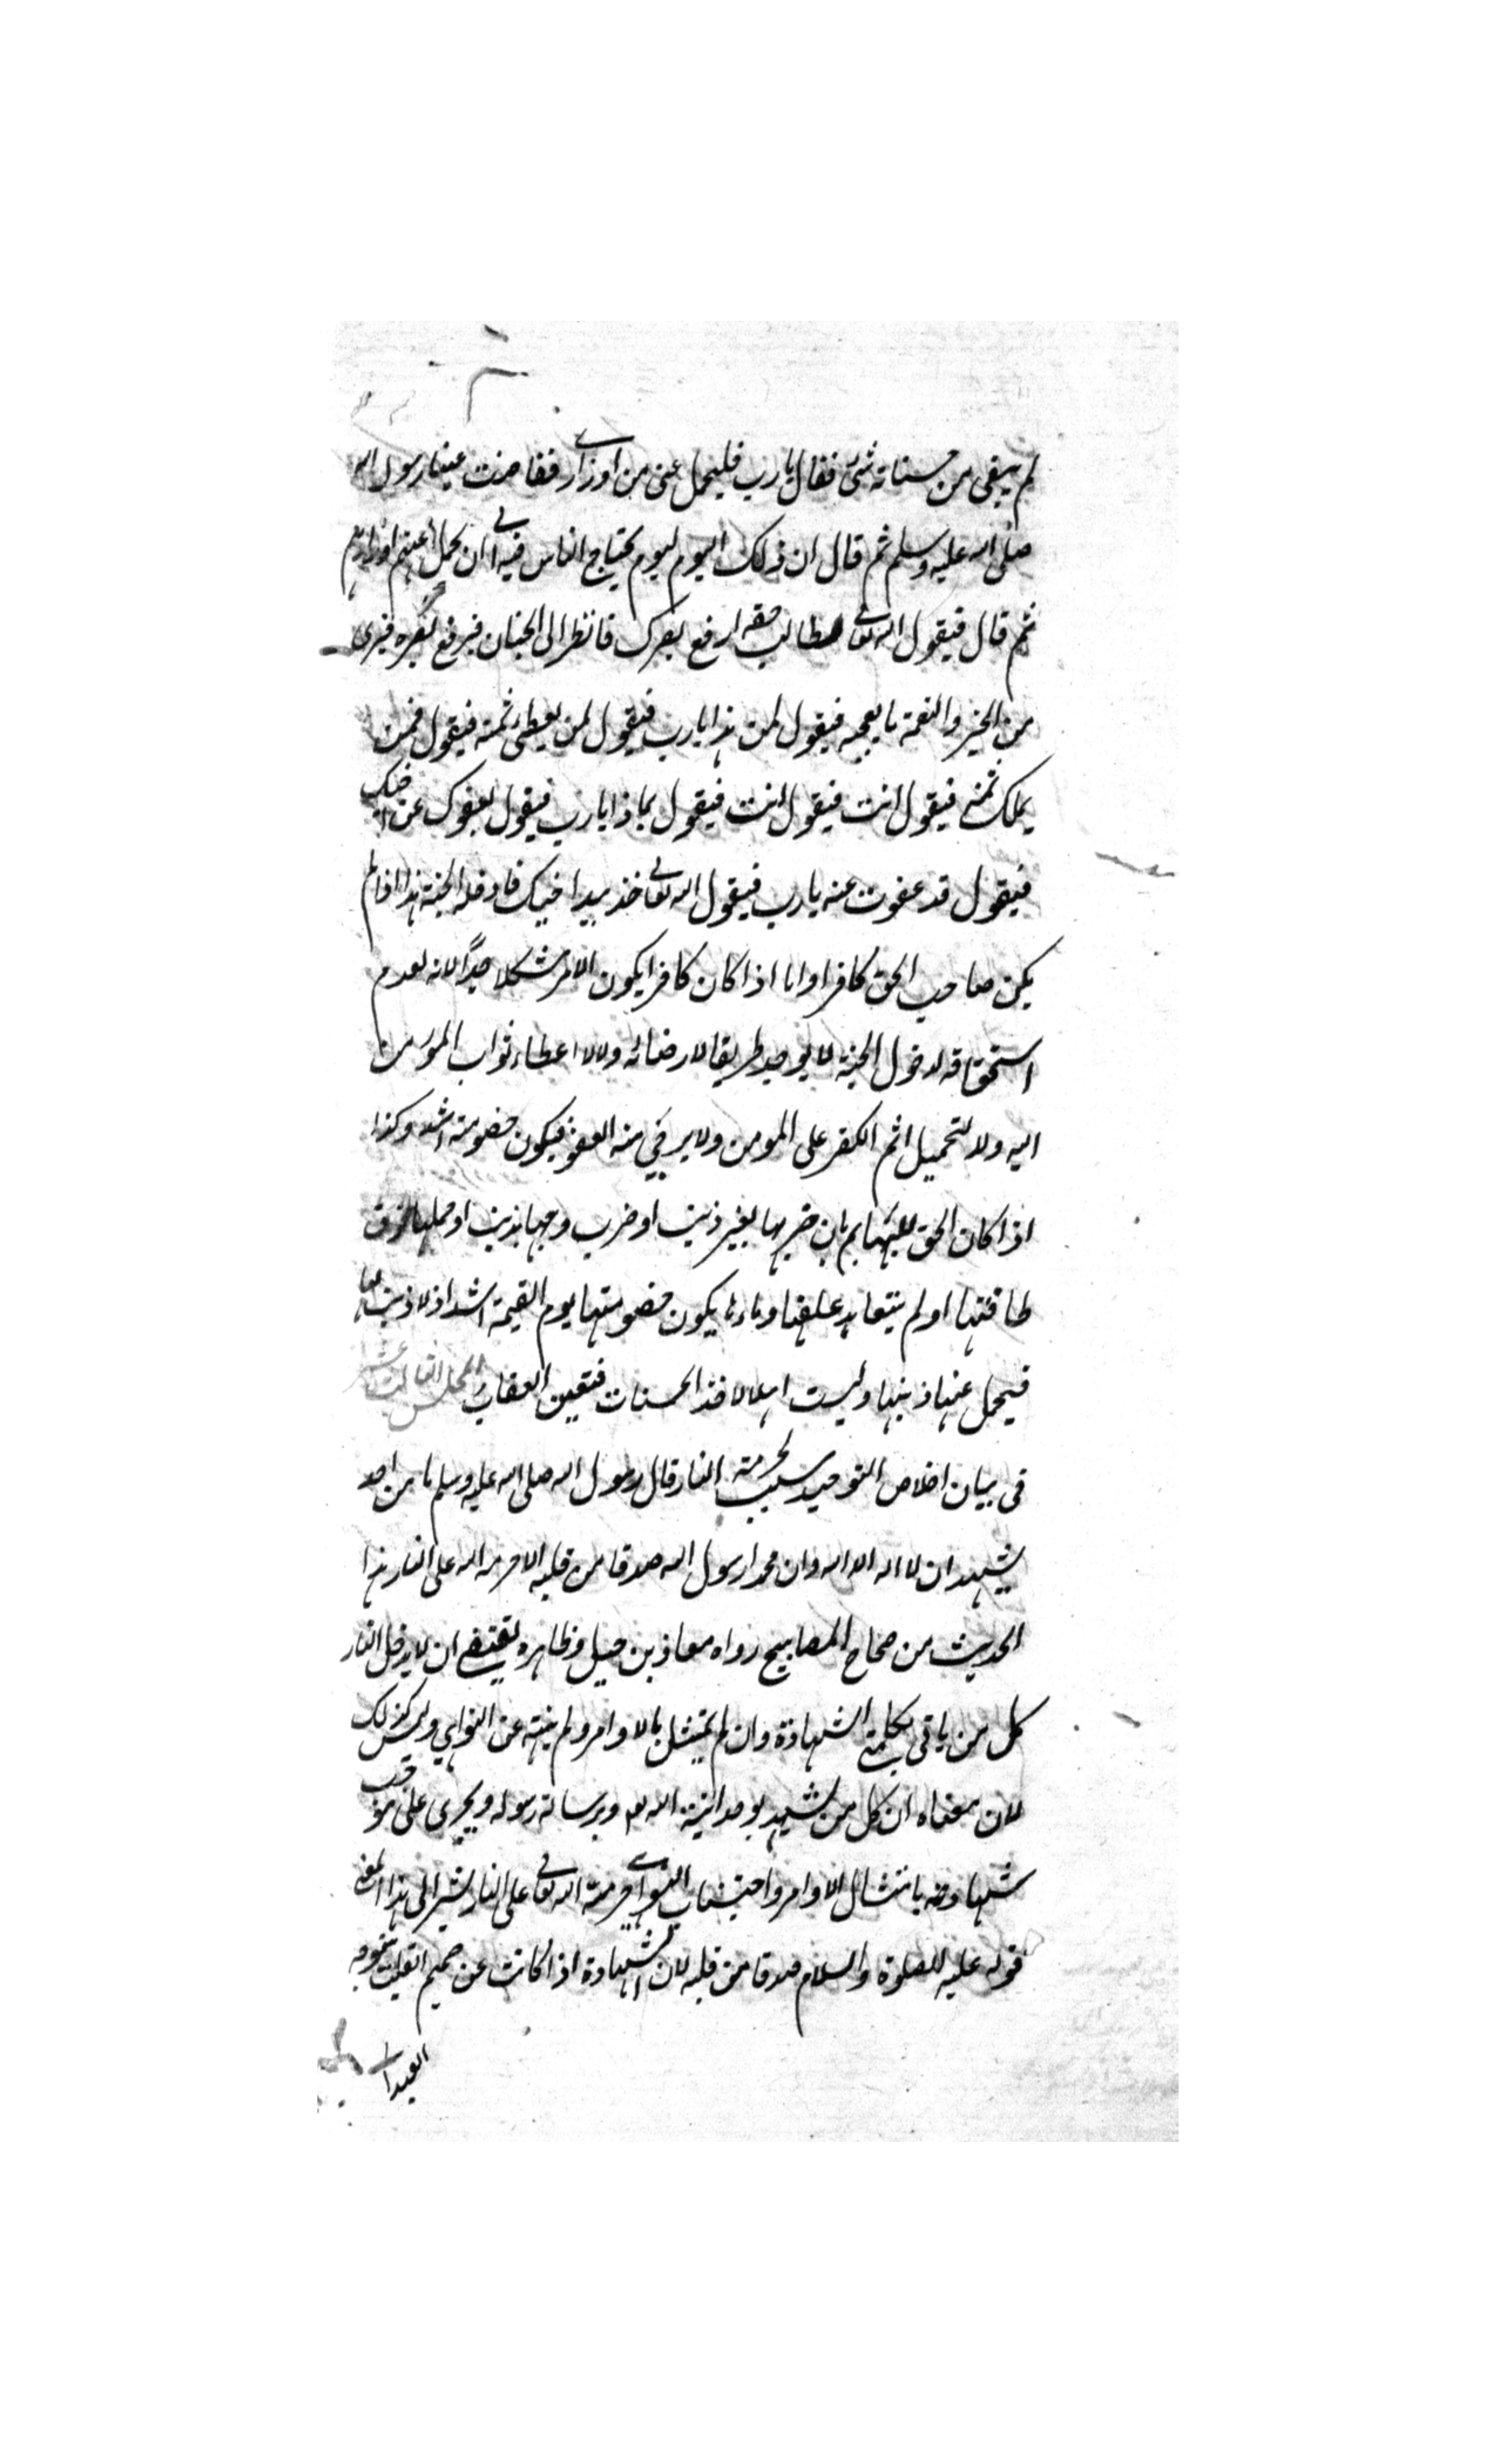 لم يبقى من حسناته شئ فقال يارب فليحمل عنى من اوزارى ففاضت عينا رسول الله
صلى الله عليه وسلم ثم قال ان ذلك اليوم ليوم يحتاج الناس فيه الى ان يحمل عنهم اوزارهم
ثم قال فيقول الله تعالى لطالب حقه ارفع بصرك فانظر الى الجنان فيرفع بصره فيرى
من الخير والنعمة ما يعجبه فيقول لمن هذا يارب فيقول لمن يعطى ثمنه فيقول فمن
يملك ثمنه فيقول انت فيقول انت فيقول بماذا يارب فيقول بعفوك عن اخيك
فيقول قد عفوت عنه يارب فيقول الله تعالى خذ بيد اخيك فادخله الجنة هذا اذا لم
يكن صاحب الحق كافرا واما اذا كان كافرا يكون الامر مشكلا جدًا لانه لعدم
استحقاقه لدخول الجنة لا يوجد طريقا لارضائه ولا لاعطاء ثواب المؤمن
اليه ولا لتحميل اثم الكفر على المومن ولا يرجى منه العفو فيكون خصومته اشد وكذا
اذا كان الحق للبهايم بان ضربها بغير ذنب او ضرب وجهها بذنب او حملها فوق
طاقتها او لم يتعاهد علفها وماءها يكون خصومتها يوم القيمة اشد اذ لا ذنب لها
فيحمل عنها ذنبها وليست اهلا لاخذ الحسنات فتعين العقاب المجلس الثالث عشر
فى بيان اخلاص التوحيد سبب لحرمة النار قال رسول الله صلى الله عليه وسلم ما من احد
يشهد ان لا اله الا الله وان محمدا رسول الله صدقا من قلبه الا حرمه الله على النار هذا
الحديث من صحاح المصابيح رواه معاذ بن جبل وظاهره يقتضى ان لا يدخل النار
كل من ياتى بكلمة الشهادة وان لم يمتثل بالاوامر ولم ينته عن النواهي وليس كذلك
لان معناه ان كل من يشهد بوحدانية الله تع وبرسالة رسوله ويجرى على موجب
شهادته بامتثال الاوامر واجتناب النواهى حرمه الله تعالى على النار يشير الى هذا المعنى
قوله عليه الصلوة والسلام صدقا من قلبه لان الشهادة اذا كانت عن صميم القلب يتوجه
العبد